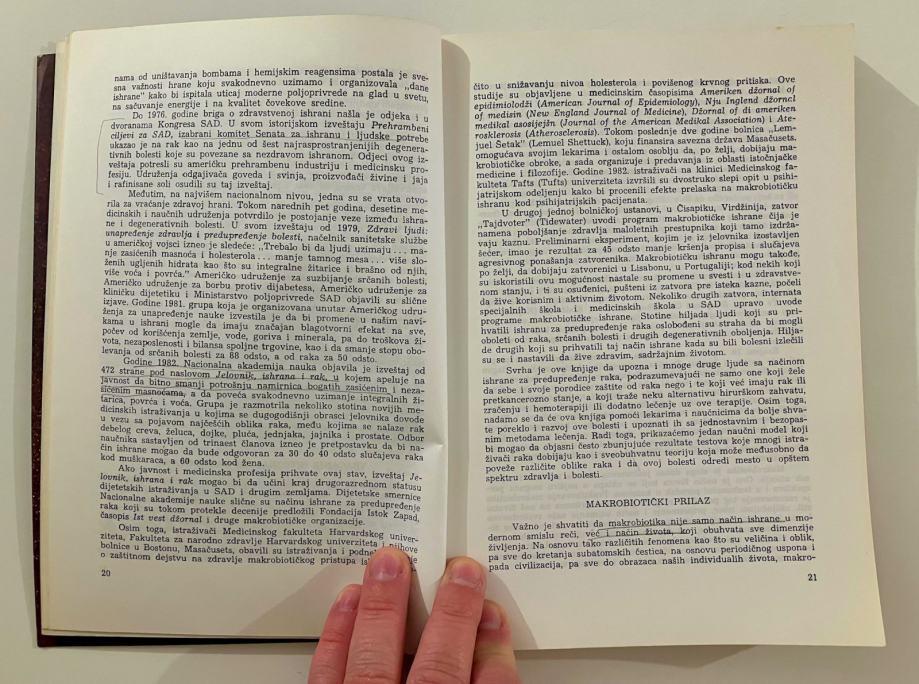 nama od uništavanja bombama i hemijskim reagensima postala je sve-
sna važnosti hrane koju svakodnevno uzimamo i organizovala „dane
ishrane” kako bi ispitala uticaj moderne poljoprivrede na glad u svetu,
na sačuvanje energije i na kvalitet čovekove sredine.
Do 1976. godine briga o zdravstvenoj ishrani našla je odjeka i u
dvoranama Kongresa SAD. U svom istorijskom izveštaju Prehrambeni
ciljevi za SAD, izabrani komitet Senata za ishranu i ljudske potrebe
ukazao je na rak kao na jednu od šest najrasprostranjenijih degenera-
tivnih bolesti koje su povezane sa nezdravom ishranom. Odjeci ovog iz-
veštaja potresli su američku prehrambenu industriju i medicinsku pro-
fesiju. Udruženja odgajivača goveda i svinja, proizvođači živine i jaja
i rafinisane soli osudili su taj izveštaj.
Međutim, na najvišem nacionalnom nivou, jedna su se vrata otvo-
rila za vraćanje zdravoj hrani. Tokom narednih pet godina, desetine me-
dicinskih i naučnih udruženja potvrdilo je postojanje veze između ishra-
ne i degenerativnih bolesti. U svom izveštaju od 1979, Zdravi ljudi:
unapređenje zdravlja i predupređenje bolesti, načelnik sanitetske službe
u američkoj vojsci izneo je sledeće: „Trebalo bi da ljudi uzimaju . . . ma-
nje zasićenih masnoća i holesterola . . . manje tamnog mesa . . . više slo-
ženih ugljenih hidrata kao što su integralne žitarice i brašno od njih,
više voća i povrća.” Američko udruženje za suzbijanje srčanih bolesti,
Američko udruženje za borbu protiv dijabetesa, Američko udruženje za
kliničku dijetetiku i Ministarstvo poljoprivrede SAD objavili su slične
izjave. Godine 1981. grupa koja je organizovana unutar Američkog udru-
ženja za unapređenje nauke izvestila je da bi promene u našim navi-
kama u ishrani mogle da imaju značajan blagotvorni efekat na sve,
počev od korišćenja zemlje, vode, goriva i minerala, pa do troškova ži-
vota, nezaposlenosti i bilansa spoljne trgovine, kao i da smanje stopu obo-
levanja od srčanih bolesti za 88 odsto, a od raka za 50 odsto.
Godine 1982. Nacionalna akademija nauka objavila je izveštaj od
472 strane pod naslovom Jelovnik, ishrana i rak, u kojem apeluje na
javnost da bitno smanji potrošnju namirnica bogatih zasićenim i neza-
sićenim masnoćama, a da poveća svakodnevno uzimanje integralnih ži-
tarica, povrća i voća. Grupa je razmotrila nekoliko stotina novijih me-
dicinskih istraživanja u kojima se dugogodišnji obrasci jelovnika dovode
u vezu sa pojavom najčešćih oblika raka, među kojima se nalaze rak
debelog creva, želuca, dojke, pluća, jednjaka, jajnika i prostate. Odbor
naučnika sastavljen od trinaest članova izneo je pretpostavku da bi na-
čin ishrane mogao da bude odgovoran za 30 do 40 odsto slučajeva raka
kod muškaraca, a 60 odsto kod žena.
Ako javnost i medicinska profesija prihvate ovaj stav, izveštaj Je-
lovnik, ishrana i rak mogao bi da učini kraj drugorazrednom statusu
dijetetskih istraživanja u SAD i drugim zemljama. Dijetetske smernice
Nacionalne akademije nauke slične su načina ishrane za predupređenje
raka koji su tokom protekle decenije predložili Fondacija Istok Zapad,
časopis Ist vest džornal i druge makrobiotičke organizacije.
Osim toga, istraživači Medicinskog fakulteta Harvardskog univer-
ziteta, Fakulteta za narodno zdravlje Harvardskog univerziteta i njihove
bolnice u Bostonu, Masačusets, obavili su istraživanja i
o zaštitnom dejstvu na zdravlje makrobiotičkog pristupa
20
čito u snižavanju nivoa holesterola i povišenog krvnog pritiska. Ove
studije su objavljene u medicinskim časopisima Ameriken džornal of
epidimiolodži (American Journal of Epidemiology), Nju Inglend džornel
of medisin (New England Journal of Medicine), Džornal of di ameriken
medikal asosijejšn (Journal of the American Medical Association) i Ate-
rosklerosis (Atherosclerosis). Tokom poslednje dve godine bolnica „Lem-
juel Šetak” (Lemuel Shettuck), koju finansira savezna država Masačusets,
omogućava svojim lekarima i ostalom osoblju da, po želji, dobijaju ma-
krobiotičke obroke, a sada organizuje i predavanja iz oblasti istočnjačke
medicine i filozofije. Godine 1982. istraživači na klinici Medicinskog fa-
kulteta Tafts (Tufts) univerziteta izvršili su dvostruko slepi opit u psihi-
jatrijskom odeljenju kako bi procenili efekte prelaska na makrobiotičku
ishranu kod psihijatrijskih pacijenata.
U drugoj jednoj bolničkoj ustanovi, u Čisapiku, Virdžinija, zatvor
„Tajdvoter” (Tidewater) uvodi program makrobiotičke ishrane čija je
namena poboljšanje zdravlja maloletnih prestupnika koji tamo izdrža-
vaju kaznu. Preliminarni eksperiment, kojim je iz jelovnika izostavljen
šećer, imao je rezultat za 45 odsto manje kršenja propisa i slučajeva
agresivnog ponašanja zatvorenika. Makrobiotičku ishranu mogu takođe,
po želji, da dobijaju zatvorenici u Lisabonu, u Portugaliji; kod nekih koji
su iskoristili ovu mogućnost nastale su promene u svesti i u zdravstve-
nom stanju, i ti su osuđenici, pušteni iz zatvora pre isteka kazne, počeli
da žive korisnim i aktivnim životom. Nekoliko drugih zatvora, internata
specijalnih škola i medicinskih škola u SAD upravo uvode
programe makrobiotičke ishrane. Stotine hiljada ljudi koji su pri-
hvatili ishranu za predupređenje raka oslobođeni su straha da bi mogli
oboleti od raka, srčanih bolesti i drugih degenerativnih oboljenja. Hilja-
de drugih koji su prihvatili taj način ishrane kada su bili bolesni izlečili
su se i nastavili da žive zdravim, sadržajnim životom.
Svrha je ove knjige da upozna i mnoge druge ljude sa načinom
ishrane za predupređenje raka, podrazumevajući ne samo one koji žele
da sebe i svoje porodice zaštite od raka nego i te koji već imaju rak ili
pretkancerozno stanje, a koji traže neku alternativu hirurškom zahvatu,
zračenju i hemoterapiji ili dodatno lečenje uz ove terapije. Osim toga,
nadamo se da će ova knjiga pomoći lekarima i naučnicima da bolje shva-
te poreklo i razvoj ove bolesti i upoznati ih sa jednostavnim i bezopas-
nim metodama lečenja. Radi toga, prikazaćemo jedan naučni model koji
bi mogao da objasni često zbunjujuće rezultate testova koje mnogi istra-
živači raka dobijaju kao i sveobuhvatnu teoriju koja može međusobno da
poveže različite oblike raka i da ovoj bolesti odredi mesto u opštem
spektru zdravlja i bolesti.
MAKROBIOTIČKI PRILAZ
Važno je shvatiti da makrobiotika nije samo način ishrane u mo-
dernom smislu reči, već i način života, koji obuhvata sve dimenzije
življenja. Na osnovu tako različitih fenomena kao što su veličina i oblik,
pa sve do kretanja subatomskih čestica, na osnovu periodičnog uspona i
pada civilizacija, pa sve do obrazaca naših individualnih života, makro-
21